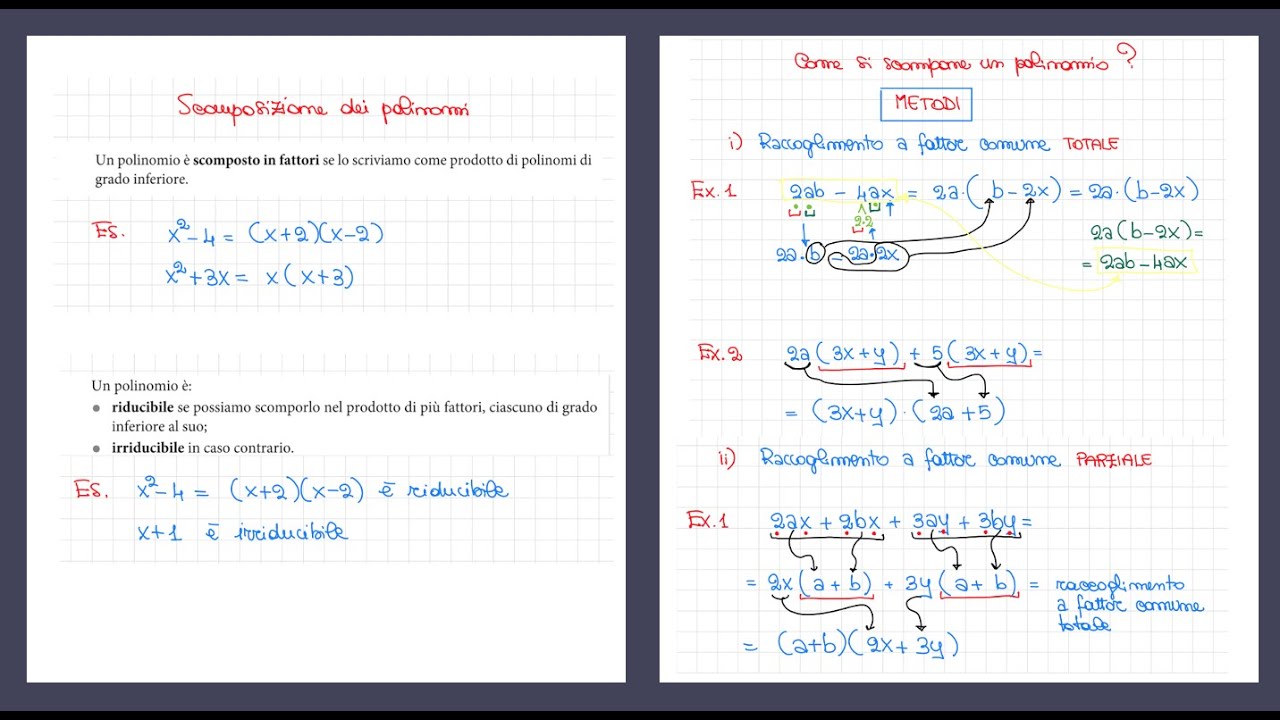 Scomposizione dei polinomi
Un polinomio è scomposto in fattori se lo scriviamo come prodotto di polinomi di
grado inferiore.
ES. x²-4 = (x+2)(x-2)
x²+3x = x(x+3)
Un polinomio è:
● riducibile se possiamo scomporlo nel prodotto di più fattori, ciascuno di grado
inferiore al suo;
● irriducibile in caso contrario.
ES. x²-4 = (x+2)(x-2) è riducibile
x+1 è irriducibile
Come si scompone un polinomio?
METODI
i) Raccoglimento a fattor comune TOTALE
Ex.1 2ab - 4ax = 2a·(b-2x) = 2a·(b-2x)
2·2
2a·b - 2a·2x
2a(b-2x)=
= 2ab-4ax
Ex.2 2a(3x+y) + 5(3x+y)=
= (3x+y)·(2a+5)
ii) Raccoglimento a fattor comune PARZIALE
Ex.1 2ax + 2bx + 3ay + 3by=
= 2x(a+b) + 3y(a+b) = raccoglimento
a fattor comune
totale
= (a+b)(2x+3y)